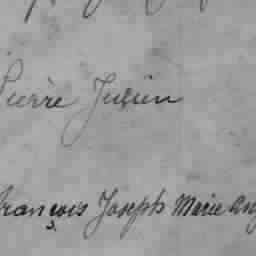 Pierre Julien
François Joseph Marie Aug